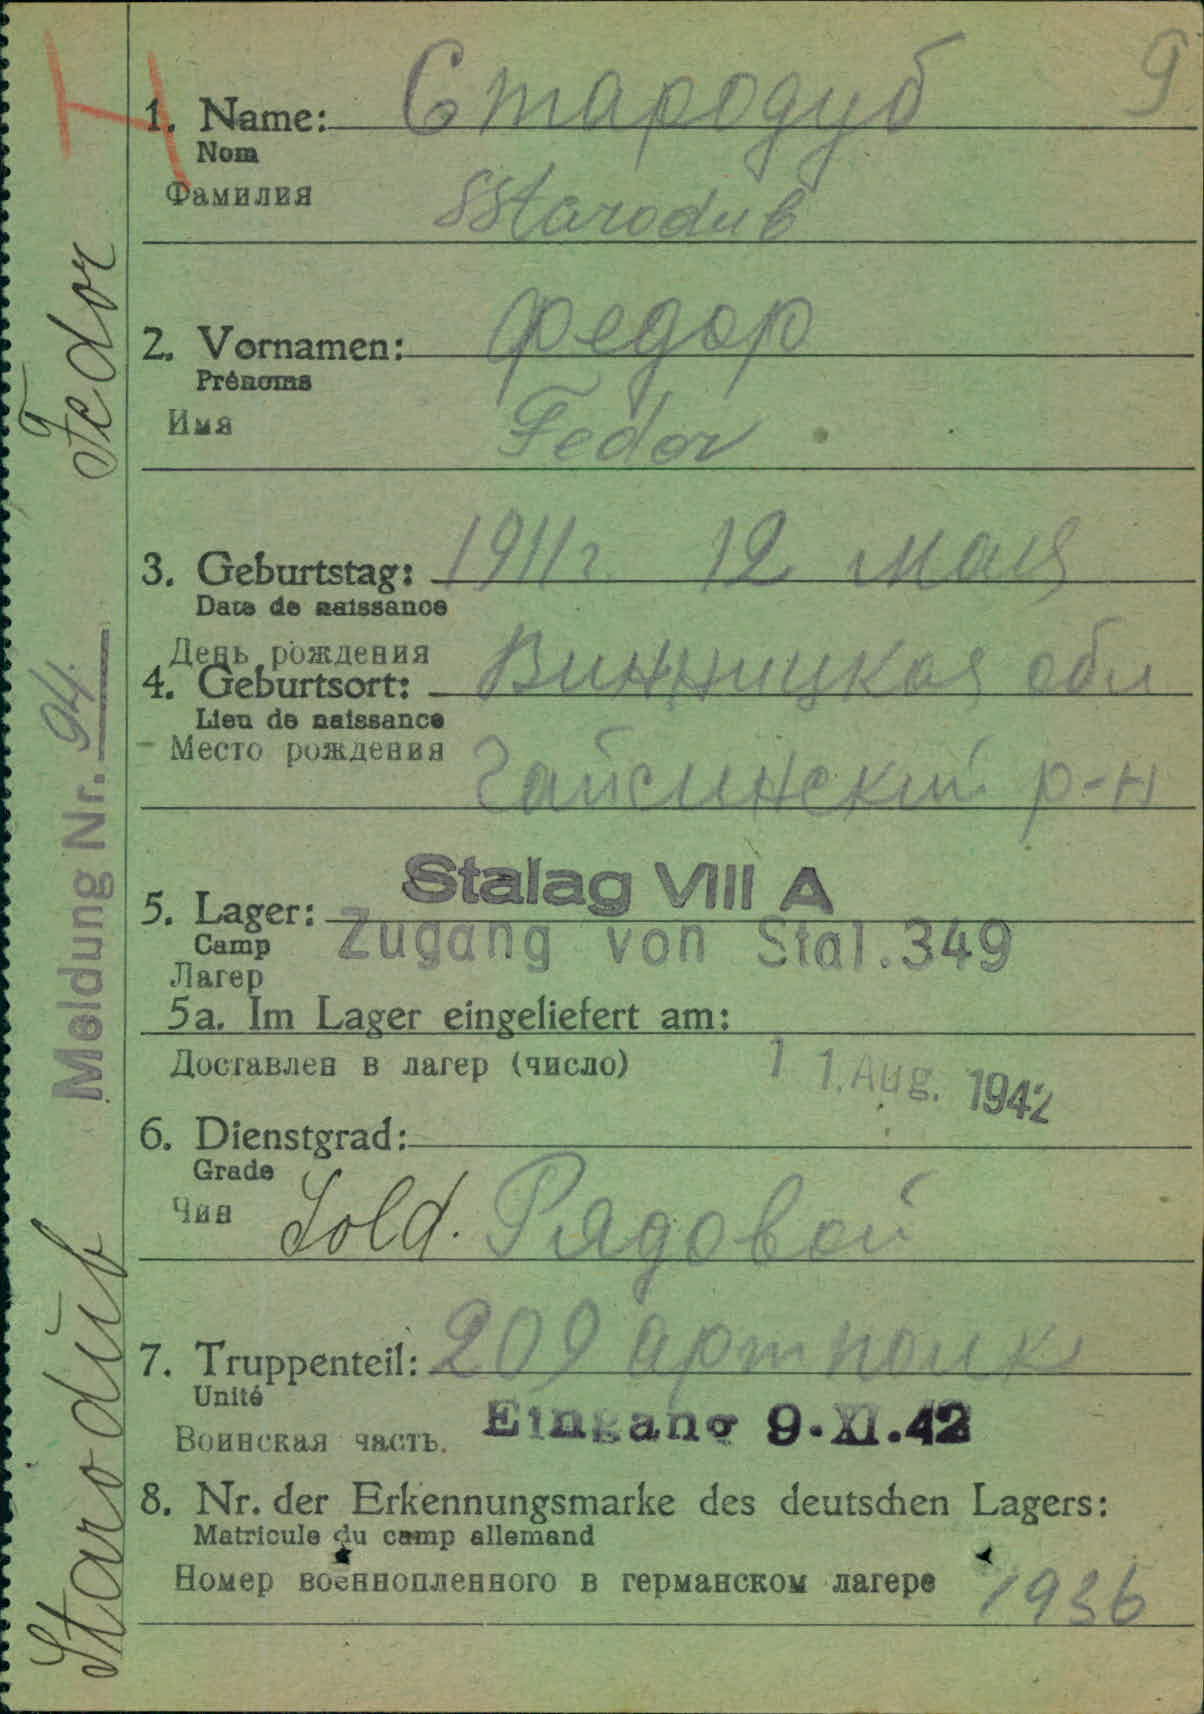 9
1. Name: Стародуб
Nom
Фамилия
Starodub
2. Vornamen: Федор
Prénoms
Имя
Fedor
3. Geburtstag: 1911 г. 12 мая
Date de naissance
День рождения
4. Geburtsort: Винницкая обл
Lieu de naissance
Место рождения
Гайсинский р-н
Stalag VIII A
5. Lager:
Camp
Zugang von Stal. 349
Лагер
5a. Im Lager eingeliefert am:
Доставлен в лагер (число)
1 1. Aug. 1942
6. Dienstgrad:
Grade
Чин
Sold. Рядовой
7. Truppenteil: 209 арт полк
Unité
Воинская часть.
Eingang 9.XI.42
8. Nr. der Erkennungsmarke des deutschen Lagers:
Matricule du camp allemand
Номер военнопленного в германском лагере 1936
Starodub Fedor
Meldung Nr. 94.